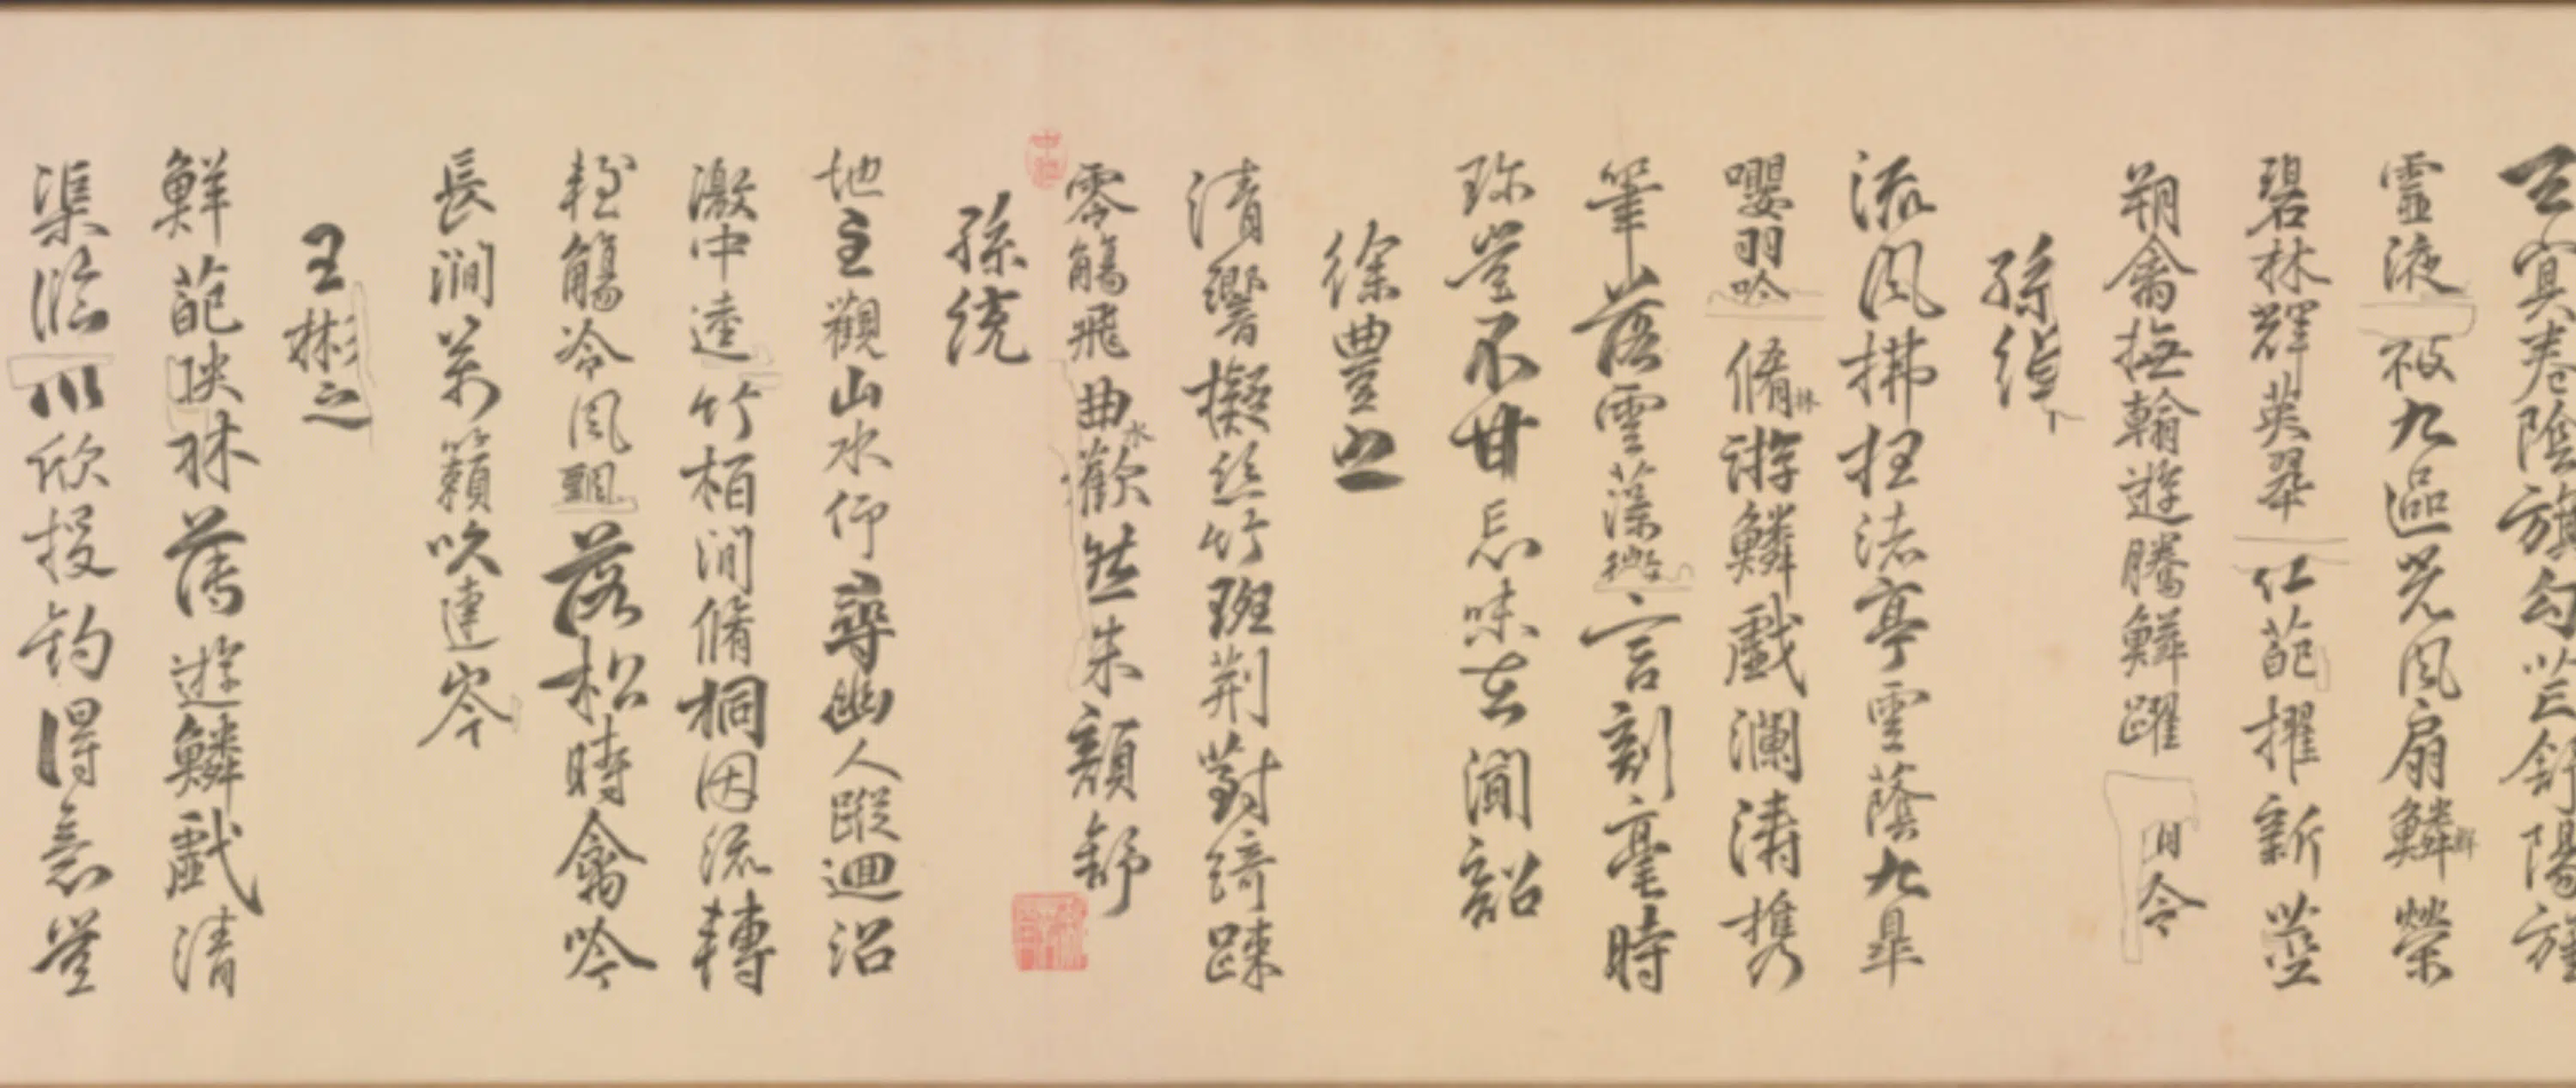 玄冥卷陰旗句芒舒陽旌
靈液被九區光風扇鱗榮
鮮
碧林輝英翠紅葩擢新莖
翔禽撫翰遊騰鱗躍清令
孫綽
流風拂枉渚亭雲蔭九皋
嚶羽吟脩游鱗戲瀾濤攜
林
筆落雲藻微言剖毫時
珍豈不甘忘味在聞韶
徐豐之
清響擬絲竹班荊對綺疎
零觴飛曲歡然朱顏舒
水
孫統
地主觀山水仰尋幽人蹤迴沼
激中逵竹栢間脩桐因流轉
輕觴冷風飄落松時禽吟
長澗萬籟吹連岑
王彬之
鮮葩映林薄遊鱗戲清
渠臨川欣投釣得意豈